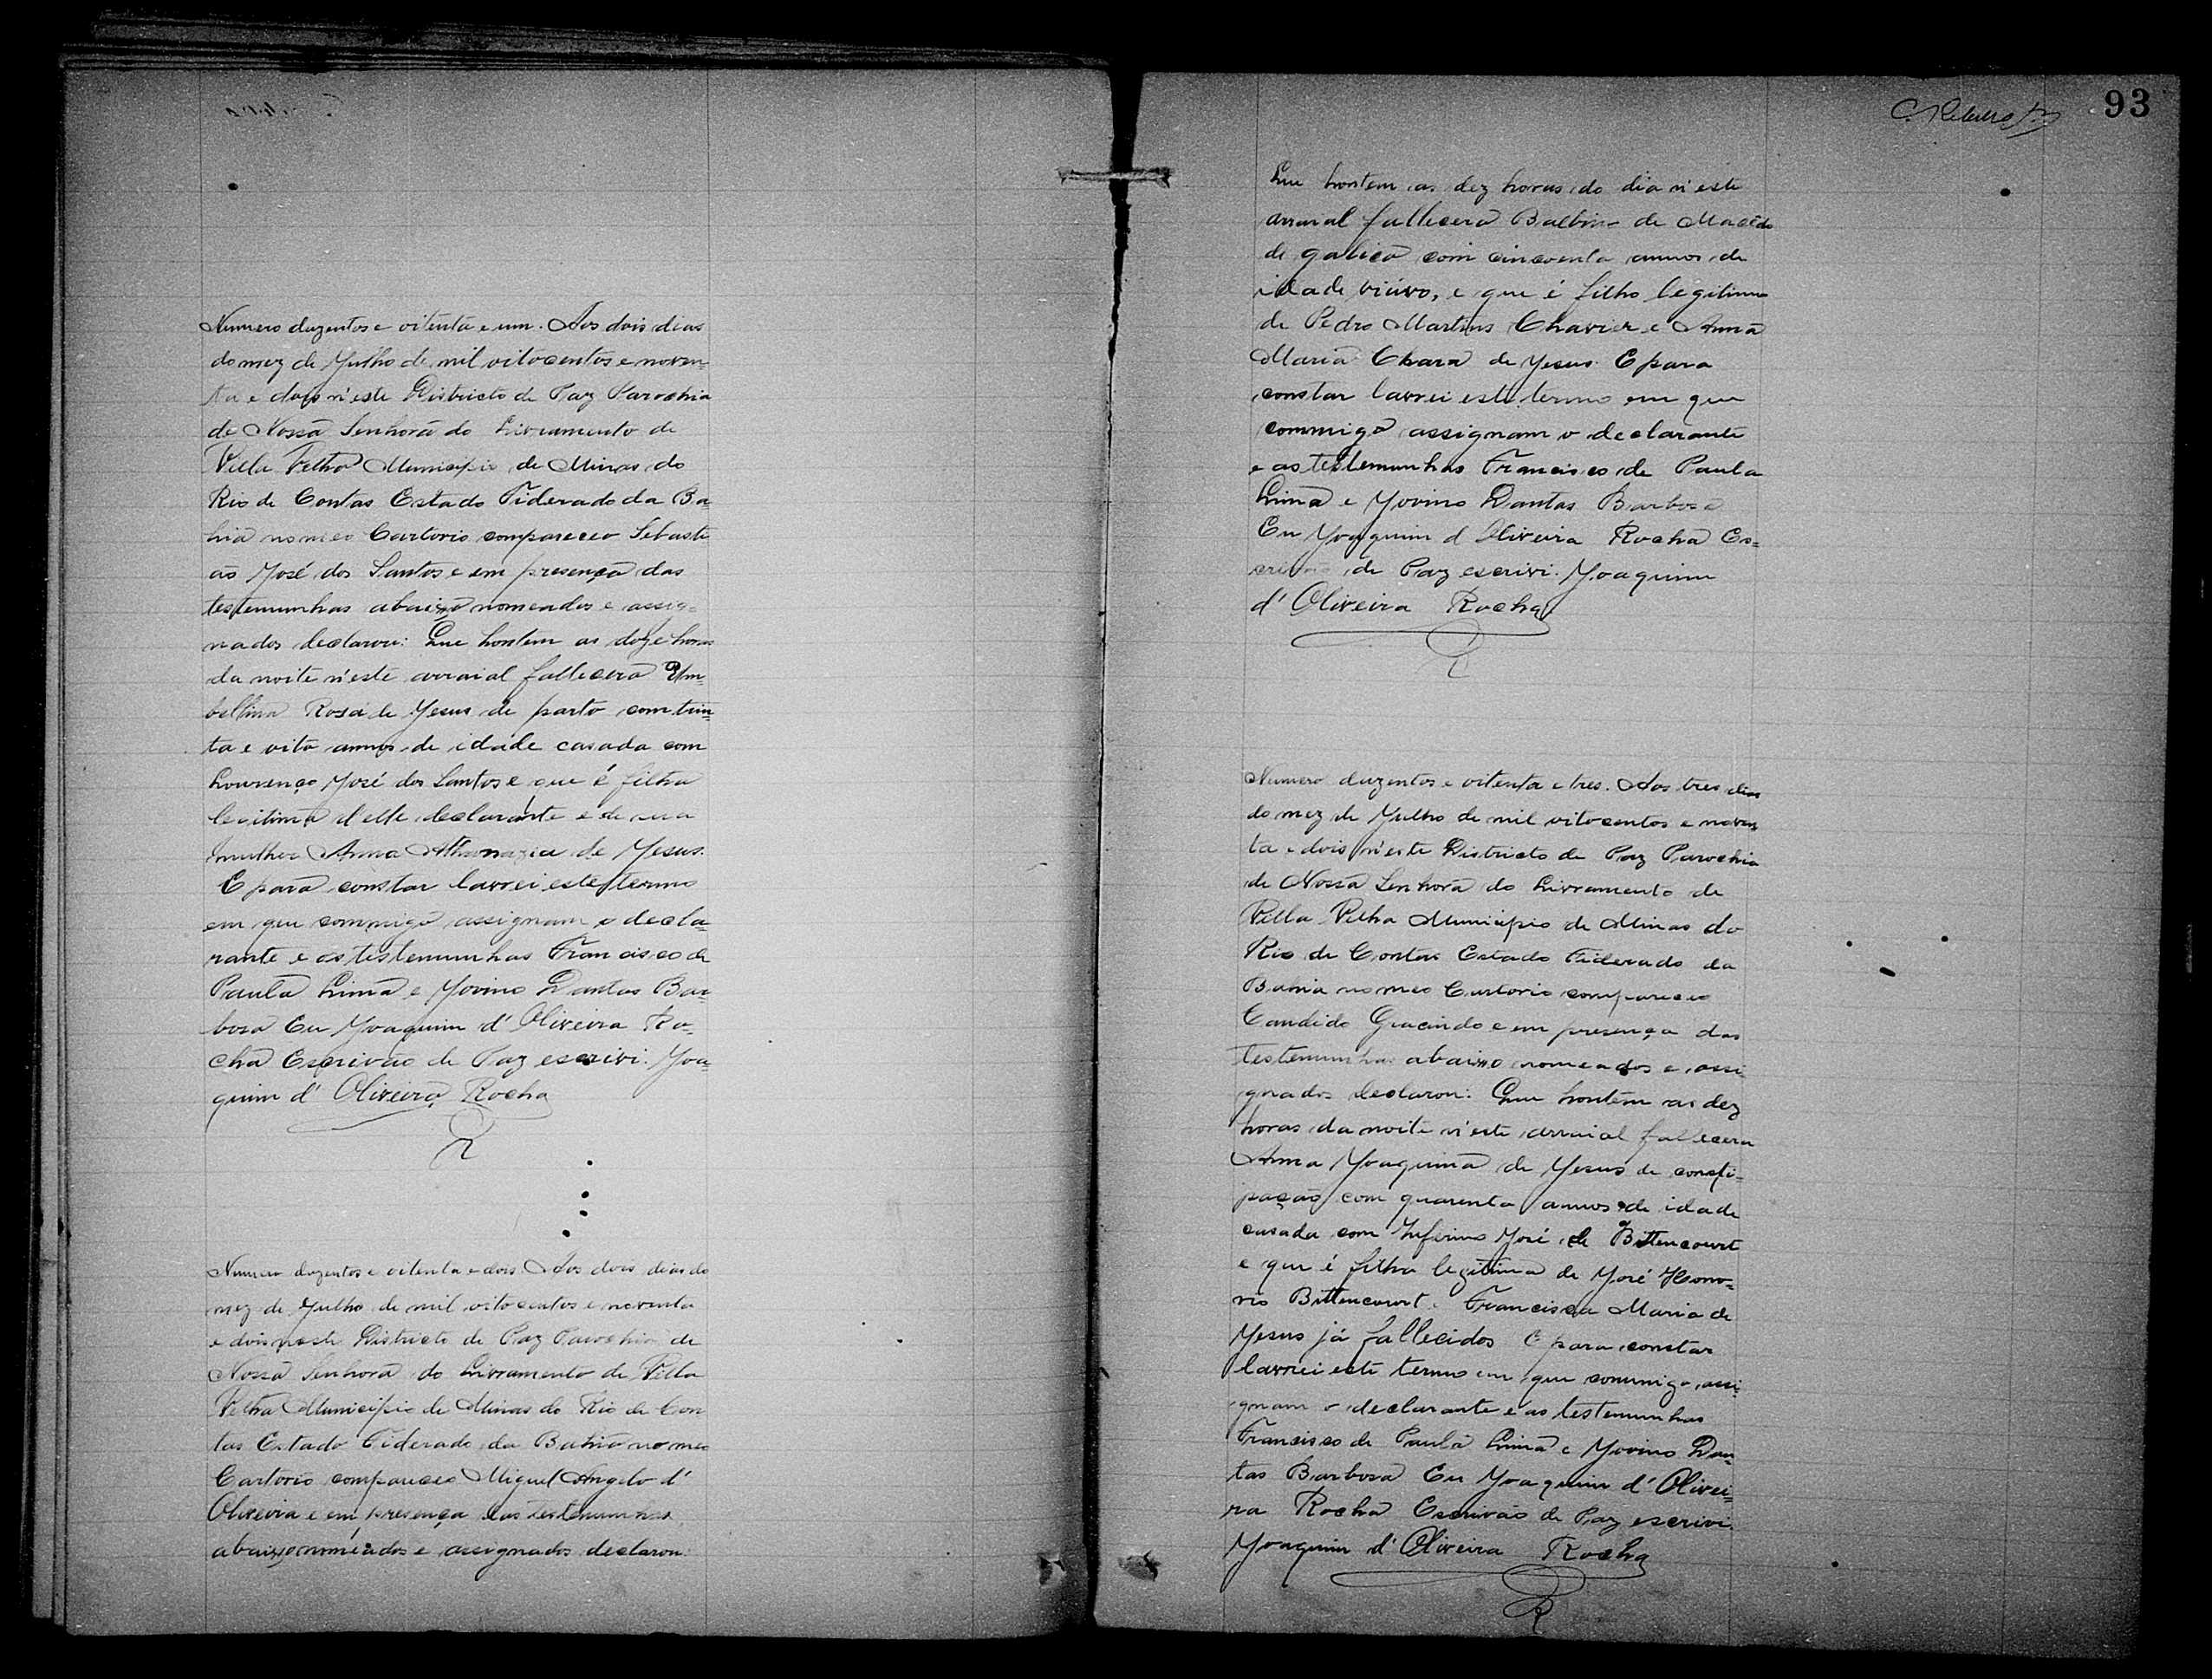 Numero duzentos e oitenta e um. Aos dois dias
do mez de Julho de mil oitocentos e noven-
ta e dois n'este Districto de Paz Parochia
de Nossa Senhora do Livramento de
Villa Velha Municipio de Minas do
Rio de Contas Estado Fiderado da Ba-
hia no meo Cartorio compareceo Sebasti
ão José dos Santos e em presença das
testemunhas abaixo nomeados e assig-
nados declarou: Que hontem as doze horas
da noite n'este arraial fallecera Um-
bellina Rosa de Jesus de parto com trin-
ta e oito annos de idade casada com
Lourenço José dos Santos e que é filha
legitima d'elle declarante e de sua
mulher Anna Athanazia de Jesus.
E para constar lavrei este termo
em que commigo assignam o decla-
rante e as testemunhas Francisco de
Paula Lima e Jovino Dantas Bar-
bosa Eu Joaquim d'Oliveira Ro-
cha Escrivão de Paz escrivi. Joa-
quim d'Oliveira Rocha
R
Numero duzentos e oitenta e dois Aos dois dias do
mez de Julho de mil oitocentos e noventa
e dois neste Districto de Paz Parochia de
Nossa Senhora do Livramento de Villa
Velha Municipio de Minas do Rio de Con
tas Estado Fiderado da Bahia no meo
Cartorio compareceo Miguel Angelo d'
Oliveira e em presença das testemunhas
abaixo nomeados e assignados declarou:
93
Que hontem as dez horas do dia n'este
arraial fallecera Balbino de Macêdo
de galico com cincoenta annos de
idade viúvo, e que é filho legitimo
de Pedro Martins Chavier e Anna
Maria Chara de Jesus. E para
constar lavrei este termo em que
commigo assignam o declarante
e as testemunhas Francisco de Paula
Lima e Jovino Dantas Barbosa
Eu Joaquim d'Oliveira Rocha Es-
crivão de Paz escrivi. Joaquim
d'Oliveira Rocha
R
Numero duzentos e oitenta e tres. Aos tres dias
do mez de Julho de mil oitocentos e noven
ta e dois n'este Districto de Paz Parochia
de Nossa Senhora do Livramento de
Villa Velha Municipio de Minas do
Rio de Contas Estado Fiderado da
Bahia no meo Cartorio compareceo
Candido Gracindo e em presença das
testemunhas abaixo nomeados e assi-
gnados declarou: Que hontem as dez
horas da noite n'este arraial fallecera
Anna Joaquina de Jesus de consti-
pação com quarenta annos de idade
casada com José de Bittencourt
e que é filha legitima de José Hono-
rio Bittencourt e Francisca Maria de
Jesus já fallecidos E para constar
lavrei este termo em que commigo assi
gnam o declarante e as testemunhas
Francisco de Paula Lima e Jovino Dan-
tas Barbosa Eu Joaquim d'Olivei-
ra Rocha Escrivão de Paz escrivi.
Joaquim d'Oliveira Rocha
R